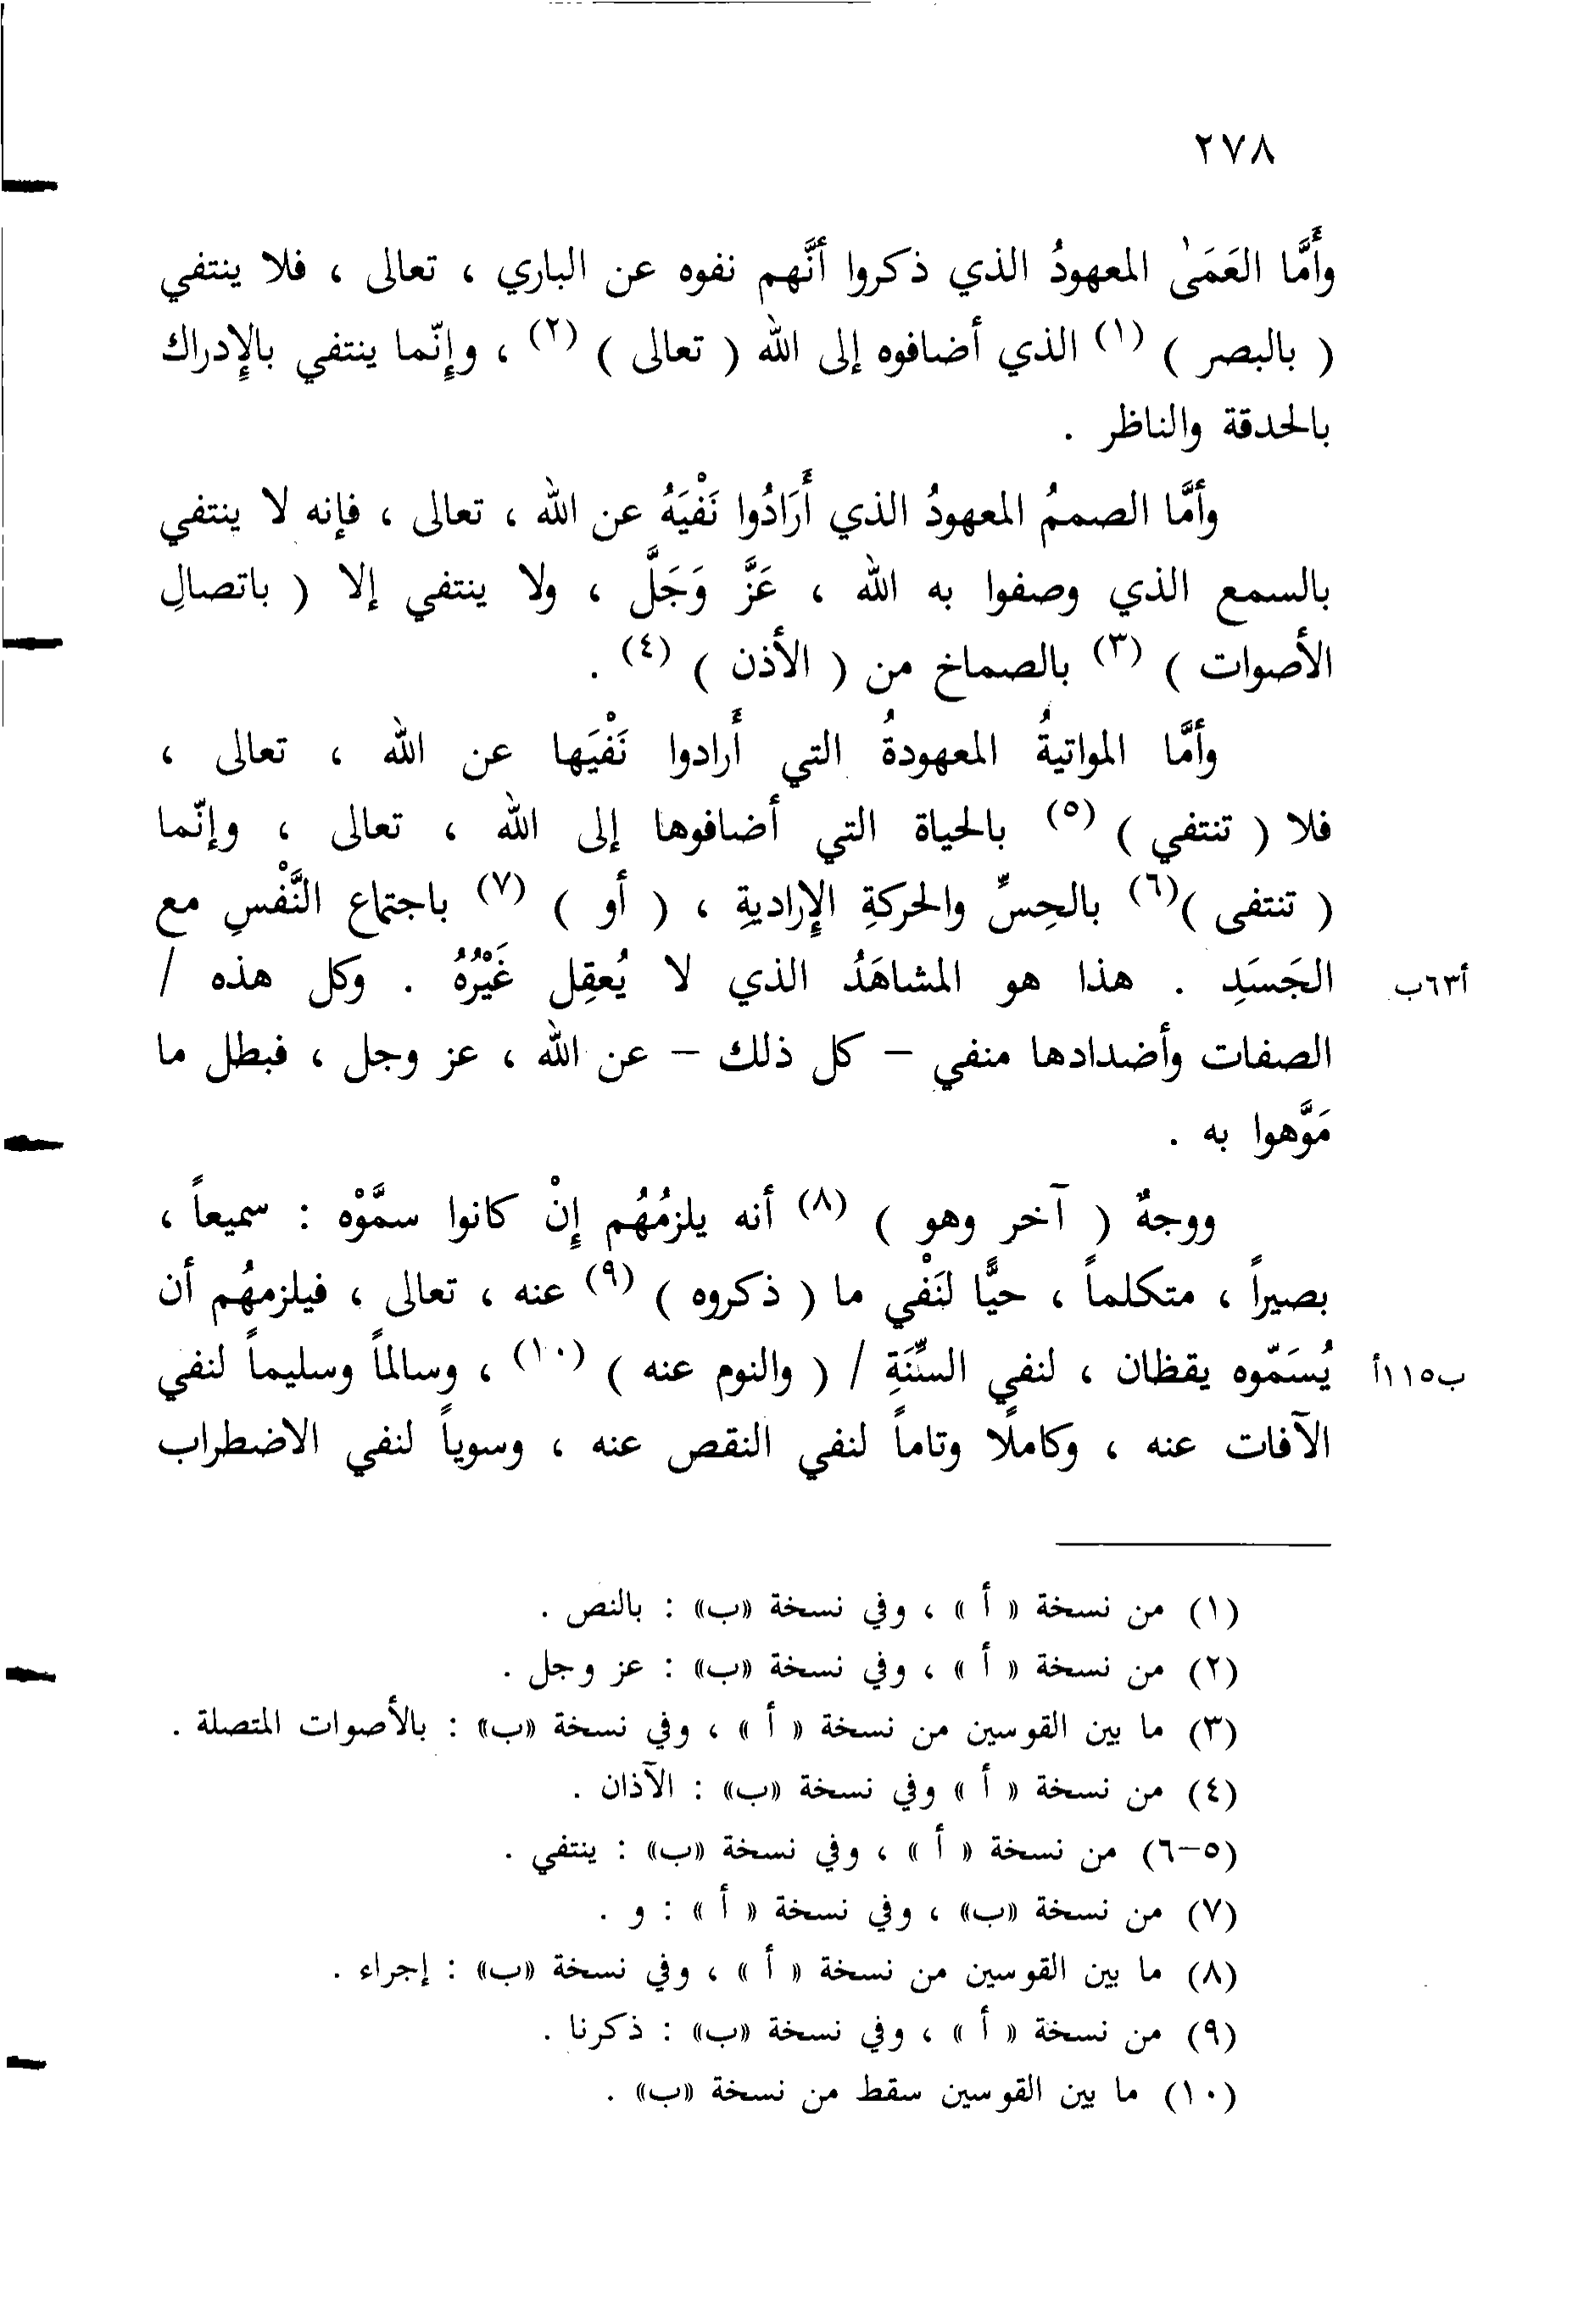 ٢٧٨
وأَمَّا العَمَىٰ المعهودُ الذي ذكروا أنَّهم نفوه عن الباري ، تعالى ، فلا ينتفي
( بالبصر ) (١) الذي أضافوه إلى الله ( تعالى ) (٢) ، وإِنّما ينتفي بالإِدراك
بالحدقة والناظر .
وأمَّا الصممُ المعهودُ الذي أَرَادُوا نَفْيَهُ عن الله ، تعالى ، فإنه لا ينتفي
بالسمع الذي وصفوا به الله ، عَزَّ وَجَلَّ ، ولا ينتفي إلا ( باتصالِ
الأصوات ) (٣) بالصماخ من ( الأذن ) (٤) .
وأمَّا المواتيةُ المعهودةُ التي أَرادوا نَفْيَها عن الله ، تعالى ،
فلا ( تنتفي ) (٥) بالحياة التي أضافوها إلى الله ، تعالى ، وإنّما
( تنتفى )(٦) بالحِسِّ والحركةِ الإِراديةِ ، ( أو ) (٧) باجتماع النَّفْسِ مع
الجَسَدِ . هذا هو المشاهَدُ الذي لا يُعقِل غَيْرُهُ . وكل هذه /
أ٦٣ب
الصفات وأضدادها منفي – كل ذلك – عن الله ، عز وجل ، فبطل ما
مَوَّهوا به .
ووجهٌ ( آخر وهو ) (٨) أنه يلزمُهُم إِنْ كانوا سمَّوْه : سميعاً ،
بصيراً ، متكلماً ، حيًّا لنَفْي ما ( ذكروه ) (٩) عنه ، تعالى ، فيلزمهُم أن
يُسَمّوه يقظان ، لنفي السِّنَةِ / ( والنوم عنه ) (١٠) ، وسالماً وسليماً لنفي
ب١١٥أ
الآفات عنه ، وكاملًا وتاماً لنفي النقص عنه ، وسوياً لنفي الاضطراب
(١) من نسخة « أ » ، وفي نسخة «ب» : بالنص .
(٢) من نسخة « أ » ، وفي نسخة «ب» : عز وجل .
(٣) ما بين القوسين من نسخة « أ » ، وفي نسخة «ب» : بالأصوات المتصلة .
(٤) من نسخة « أ » وفي نسخة «ب» : الآذان .
(٥–٦) من نسخة « أ » ، وفي نسخة «ب» : ينتفي .
(٧) من نسخة «ب» ، وفي نسخة « أ » : و .
(٨) ما بين القوسين من نسخة « أ » ، وفي نسخة «ب» : إجراء .
(٩) من نسخة « أ » ، وفي نسخة «ب» : ذكرنا .
(١٠) ما بين القوسين سقط من نسخة «ب» .